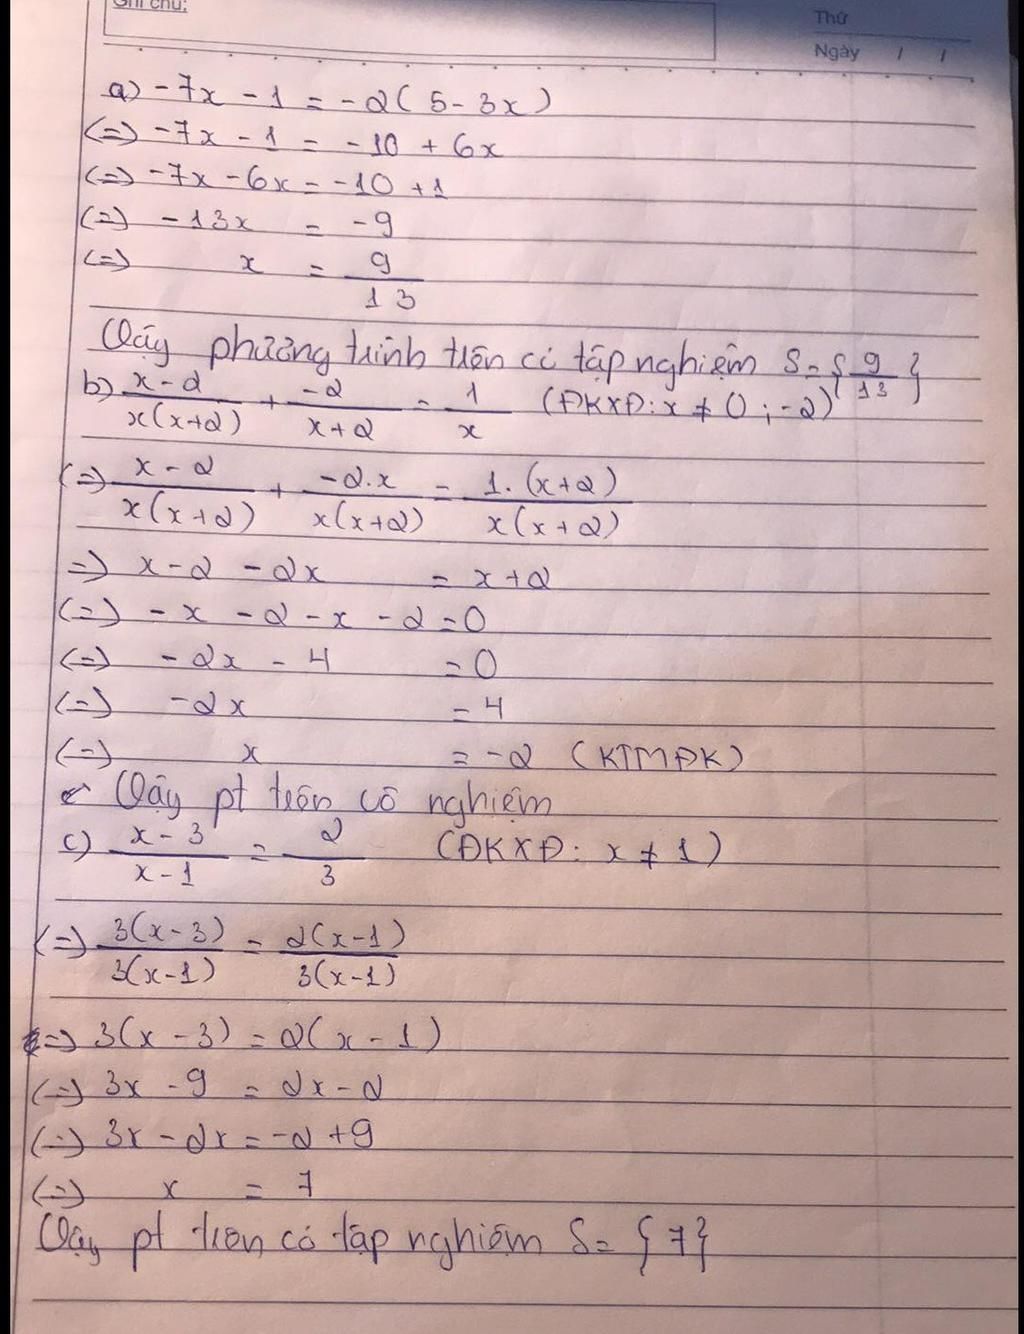 Ghi chú:
Thứ
Ngày / /
a) -7x - 1 = -2(5 - 3x)
(=) -7x - 1 = -10 + 6x
(=) -7x - 6x = -10 + 1
(=) -13x = -9
(=) x = 9/13
Vậy phương trình trên có tập nghiệm S = {9/13}
b) x-2/x(x+2) + -2/x+2 = 1/x (ĐKXĐ: x ≠ 0; -2)
(=) x-2/x(x+2) + -2.x/x(x+2) = 1.(x+2)/x(x+2)
=) x - 2 - 2x = x + 2
(=) -x - 2 - x - 2 = 0
(=) -2x - 4 = 0
(=) -2x = 4
(=) x = -2 (KTMĐK)
Vậy pt trên vô nghiệm
c) x-3/x-1 = 2/3 (ĐKXĐ: x ≠ 1)
(=) 3(x-3)/3(x-1) = 2(x-1)/3(x-1)
=) 3(x - 3) = 2(x - 1)
(=) 3x - 9 = 2x - 2
(=) 3x - 2x = -2 + 9
(=) x = 7
Vậy pt trên có tập nghiệm S = {7}